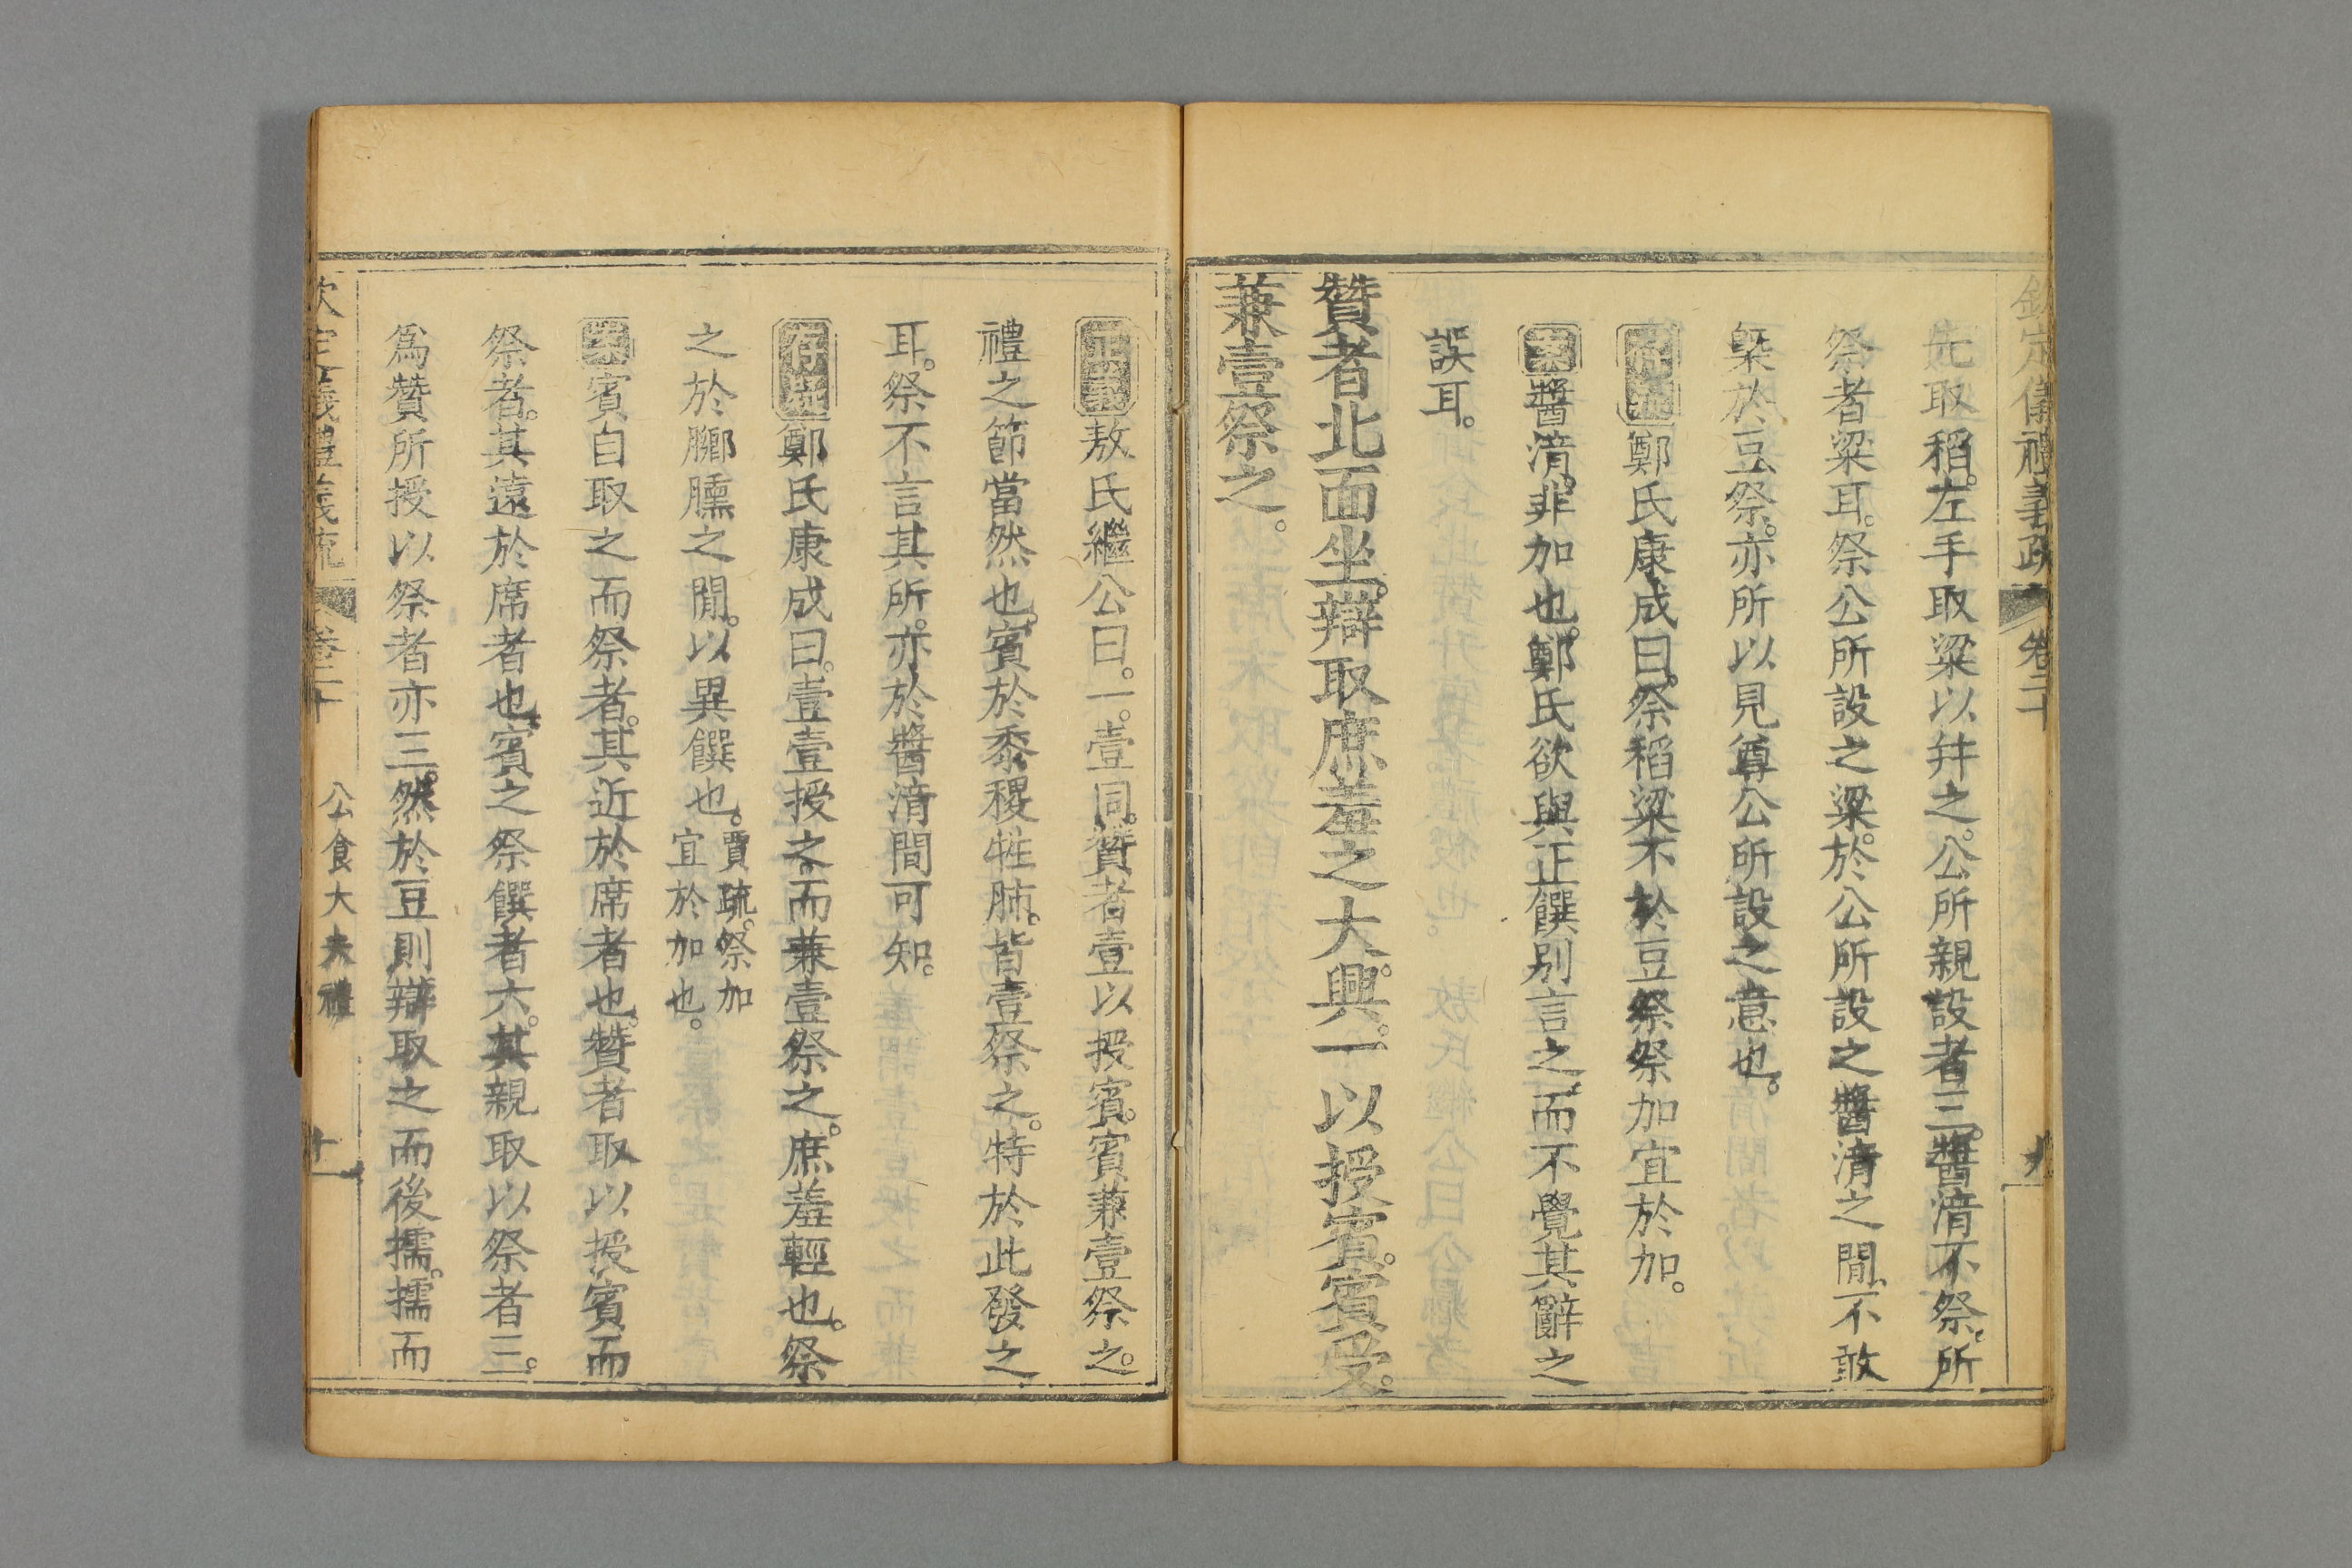 欽定儀禮義疏 卷二十
先取稻。左手取粱以幷之。公所親設者三。醬湆不祭。所
祭者粱耳。祭公所設之粱。於公所設之醬湆之閒、不敢
槩於豆祭。亦所以見尊公所設之意也。
存疑鄭氏康成曰。祭稻粱不於豆祭祭加宜於加。
案醬湆。非加也。鄭氏欲與正饌別言之。而不覺其辭之
誤耳。
贊者北面坐。辯取庶羞之大。興。一以授賓。賓受。
兼壹祭之。
正義敖氏繼公曰。一。壹同。贊者壹以授賓。賓兼壹祭之。
禮之節當然也。賓於黍稷牲肺。皆壹祭之。特於此發之
耳。祭不言其所。亦於醬湆間可知。
存疑鄭氏康成曰。壹壹授之。而兼壹祭之。庶羞輕也。祭
之於膷臐之閒。以異饌也。賈疏。祭加
宜於加也。
案賓自取之而祭者。其近於席者也。贊者取以授賓而
祭者。其遠於席者也。賓之祭饌者六。其親取以祭者三。
爲贊所授以祭者亦三。然於豆則辯取之而後擩。擩而
欽定儀禮義疏 卷二十 公食大夫禮 十一